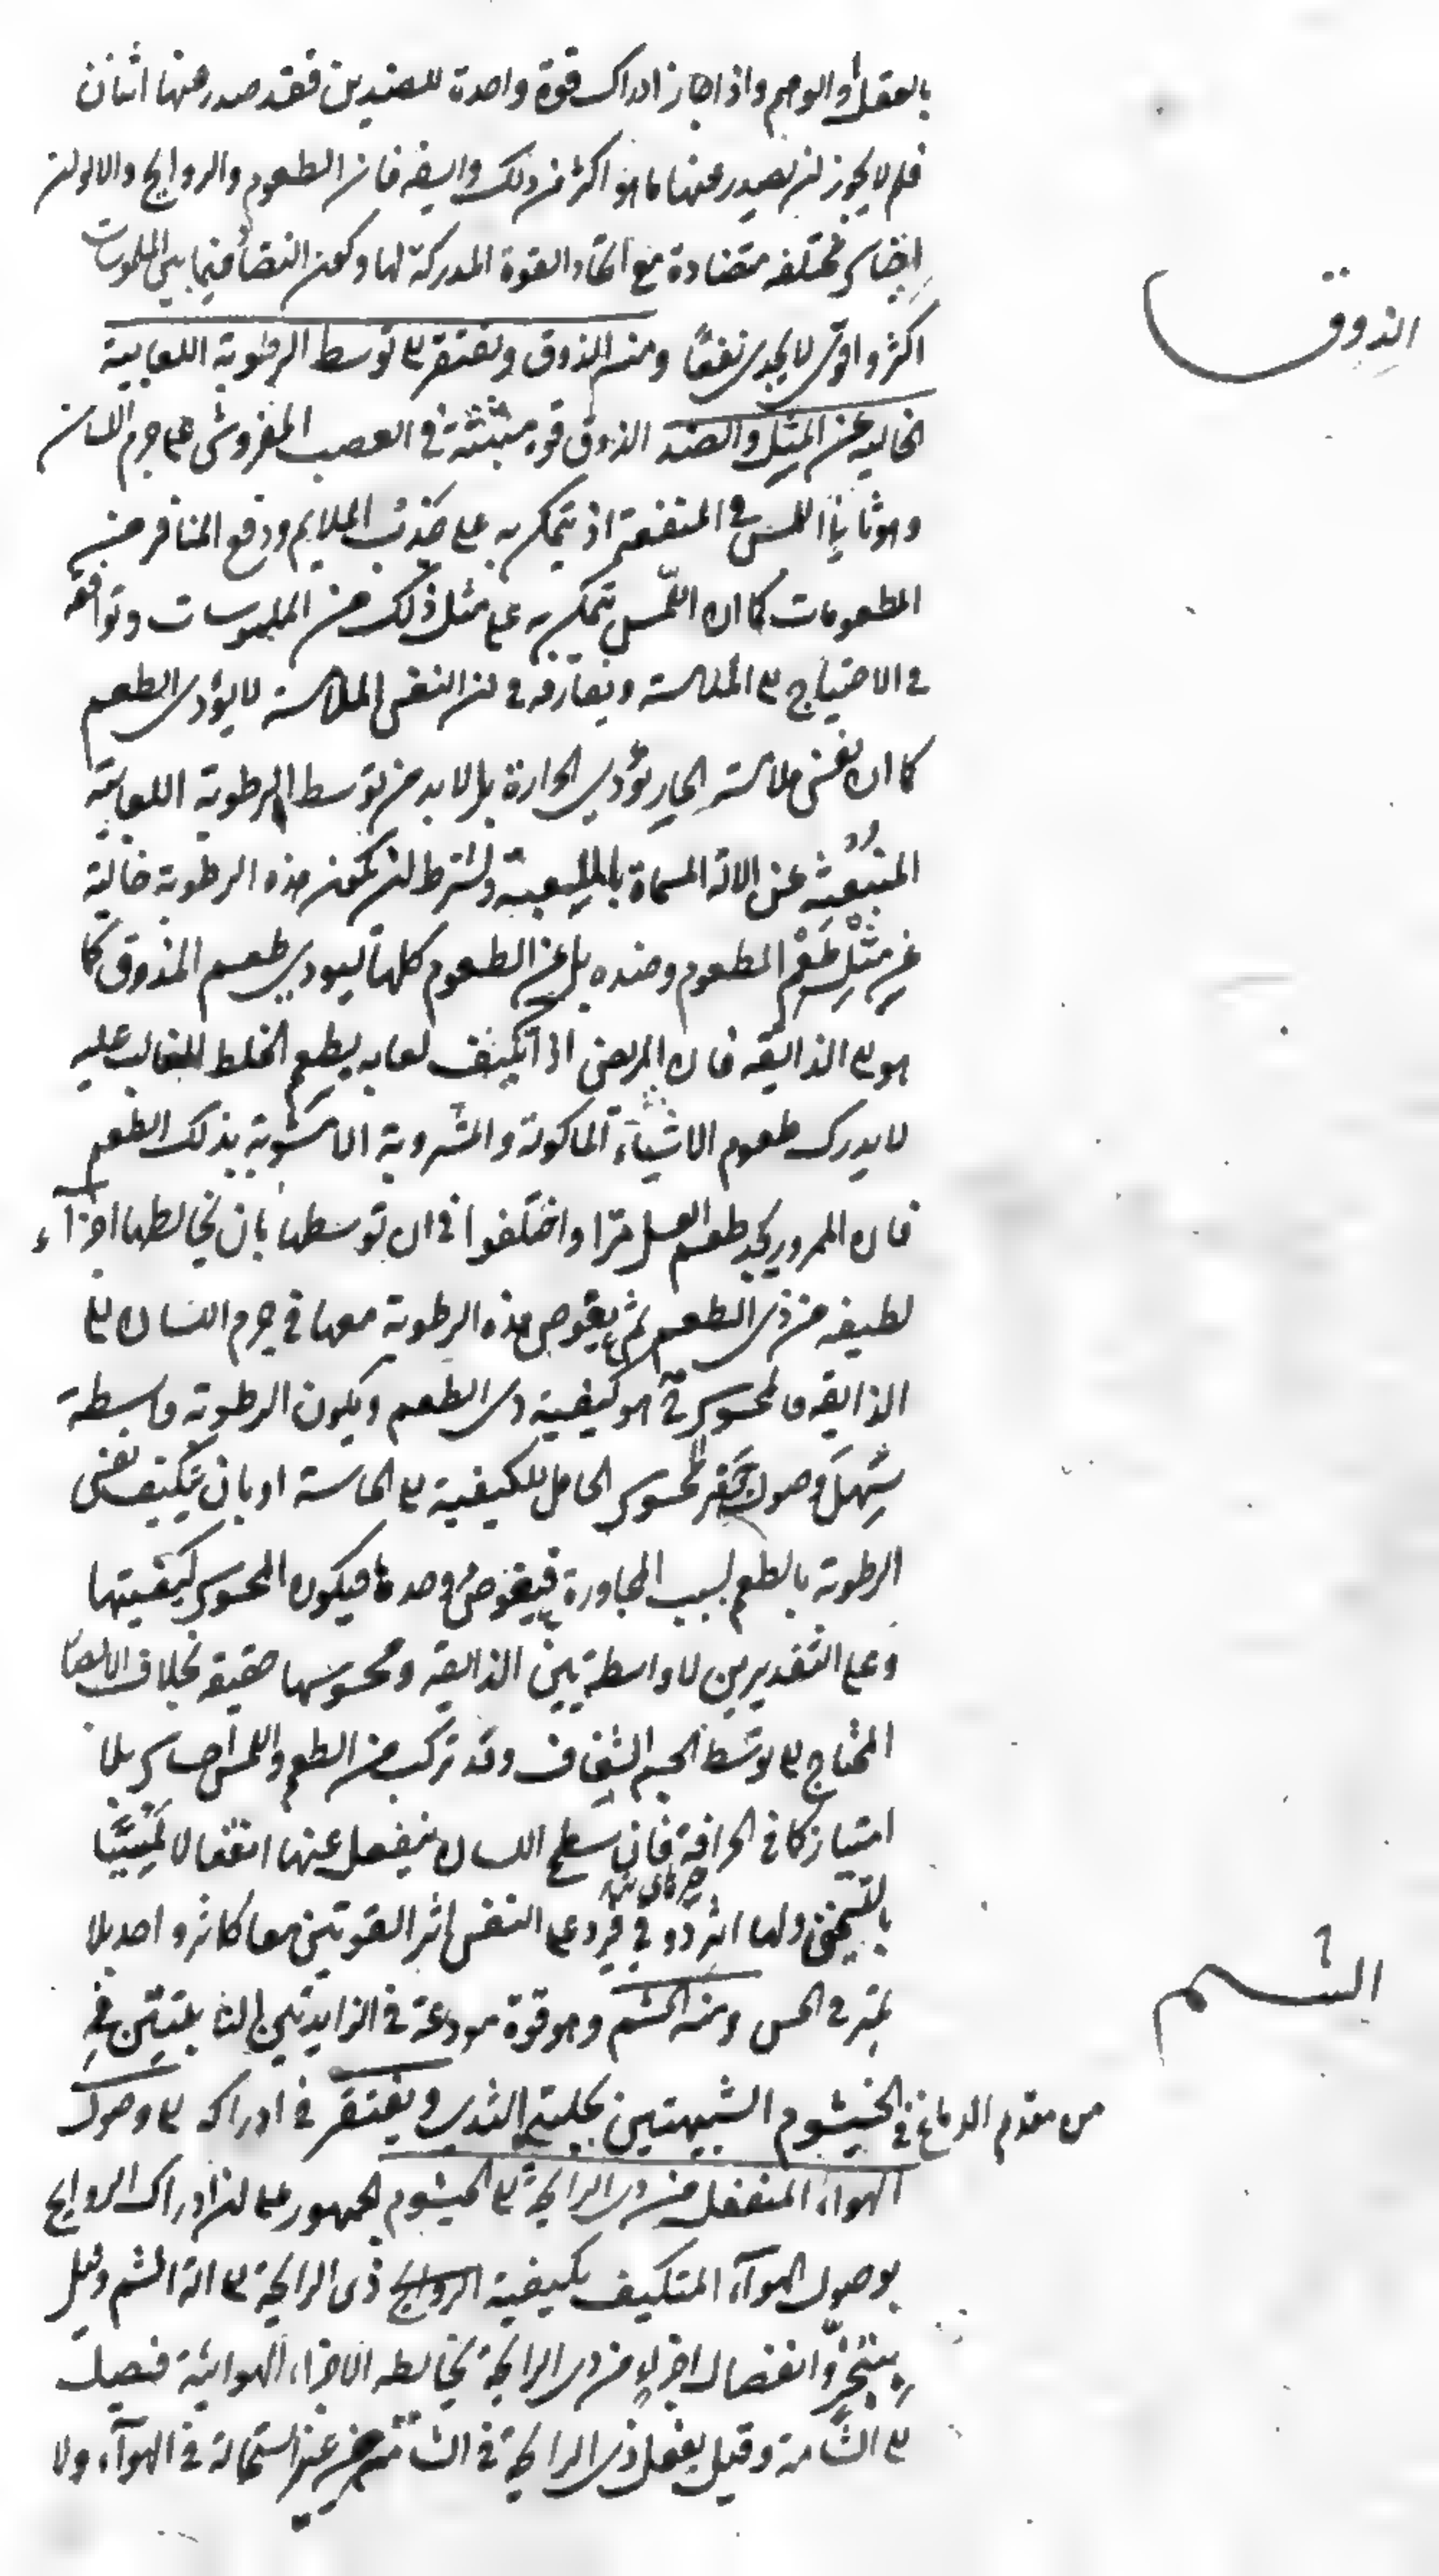 بالعقل والوهم واذا جاز ادراك قوة واحدة للضدين فقد صدر عنها اثنان
فلم لا يجوز ان يصدر عنها ما هو اكثر من ذلك وايضه فان الطعوم والروايح والالوان
اجناس مختلفه متضادة مع اتحاد القوة المدركة لها وكون التضاد فيما بين الملموسات
اكثر واقوى لا يجدى نفعًا ومنه الذوق ويفتقر الى توسط الرطوبة اللعابية
الذوق
الخاليه عن المثل والضد الذوق قوه منبثة في العصب المفروش على جرم اللسان
وهو ثانى اللمس في المنفعة اذ يتمكن به على جذب الملايم ودفع المنافر من
المطعومات كما ان اللمس يتمكن به على مثل ذلك من الملموسات وتوافقه
في الاحتياج الى الملامسة ويفارقه في ان النفس الملامسة لا يؤدى الطعم
كما ان نفس ملامسة الحار يؤدي الحرارة بل لا بد من توسط الرطوبة اللعابية
المنبعثة عن الالة المسماة بالملعبة ويشترط ان تكون هذه الرطوبة خالية
عن مثل طعم المطعوم وضده بل عن الطعوم كلها ليودي طعم المذوق كما
هو الى الذايقه فان المريض اذا تكيف لعابه بطعم الخلط الغالب عليه
لا يدرك طعوم الاشياء الماكولة والمشروبة الا مشوبة بذلك الطعم
فان الممرور يجد طعم العسل مرا واختلفوا في ان توسطها بان يخالطها اجزاء
لطيفه من ذى الطعم ثم يغوص هذه الرطوبة معها في جرم اللسان الى
الذايقه فالمحسوس ح هو كيفية ذى الطعم ويكون الرطوبة واسطة
تسهل وصول المحسوس الحامل للكيفية الى الحاسة او بان يتكيف نفس
الرطوبة بالطعم بسبب المجاورة فيغوص وحدها فيكون المحسوس كيفيتها
وعلى التقديرين لا واسطة بين الذايقة ومحسوسها حقيقة بخلاف الابصار
المحتاج الى توسط الجسم الشفاف وقد تركب من الطعم واللمس احساس بلا
امتياز كما في الحرافة فان سطح اللسان ينفعل عنها انفعالا لمسيًا
بالتسخين ولها اثر ذوقي فيرد على النفس اثر القوتين معا كاثر واحد بلا
تميز في الحس ومنه الشم وهو قوة مودعة في الزايدتين النابتتين في
الشم
من مقدم الدماغ في الخيشوم الشبيهتين بحلمتي الثدي ويفتقر في ادراكه الى وصول
الهواء المنفعل من ذى الرايحة الى الخيشوم الجمهور على ان ادراك الروايح
بوصول الهواء المتكيف بكيفية الروايح ذى الرايحة الى الة الشم وقيل
بتبخر وانفصال اجزاء من ذى الرايحة يخالطه الاجزاء الهوائية فيصل
الى الشامة وقيل يفعل ذى الرايحة في الشامة من غير استحالة في الهواء ولا